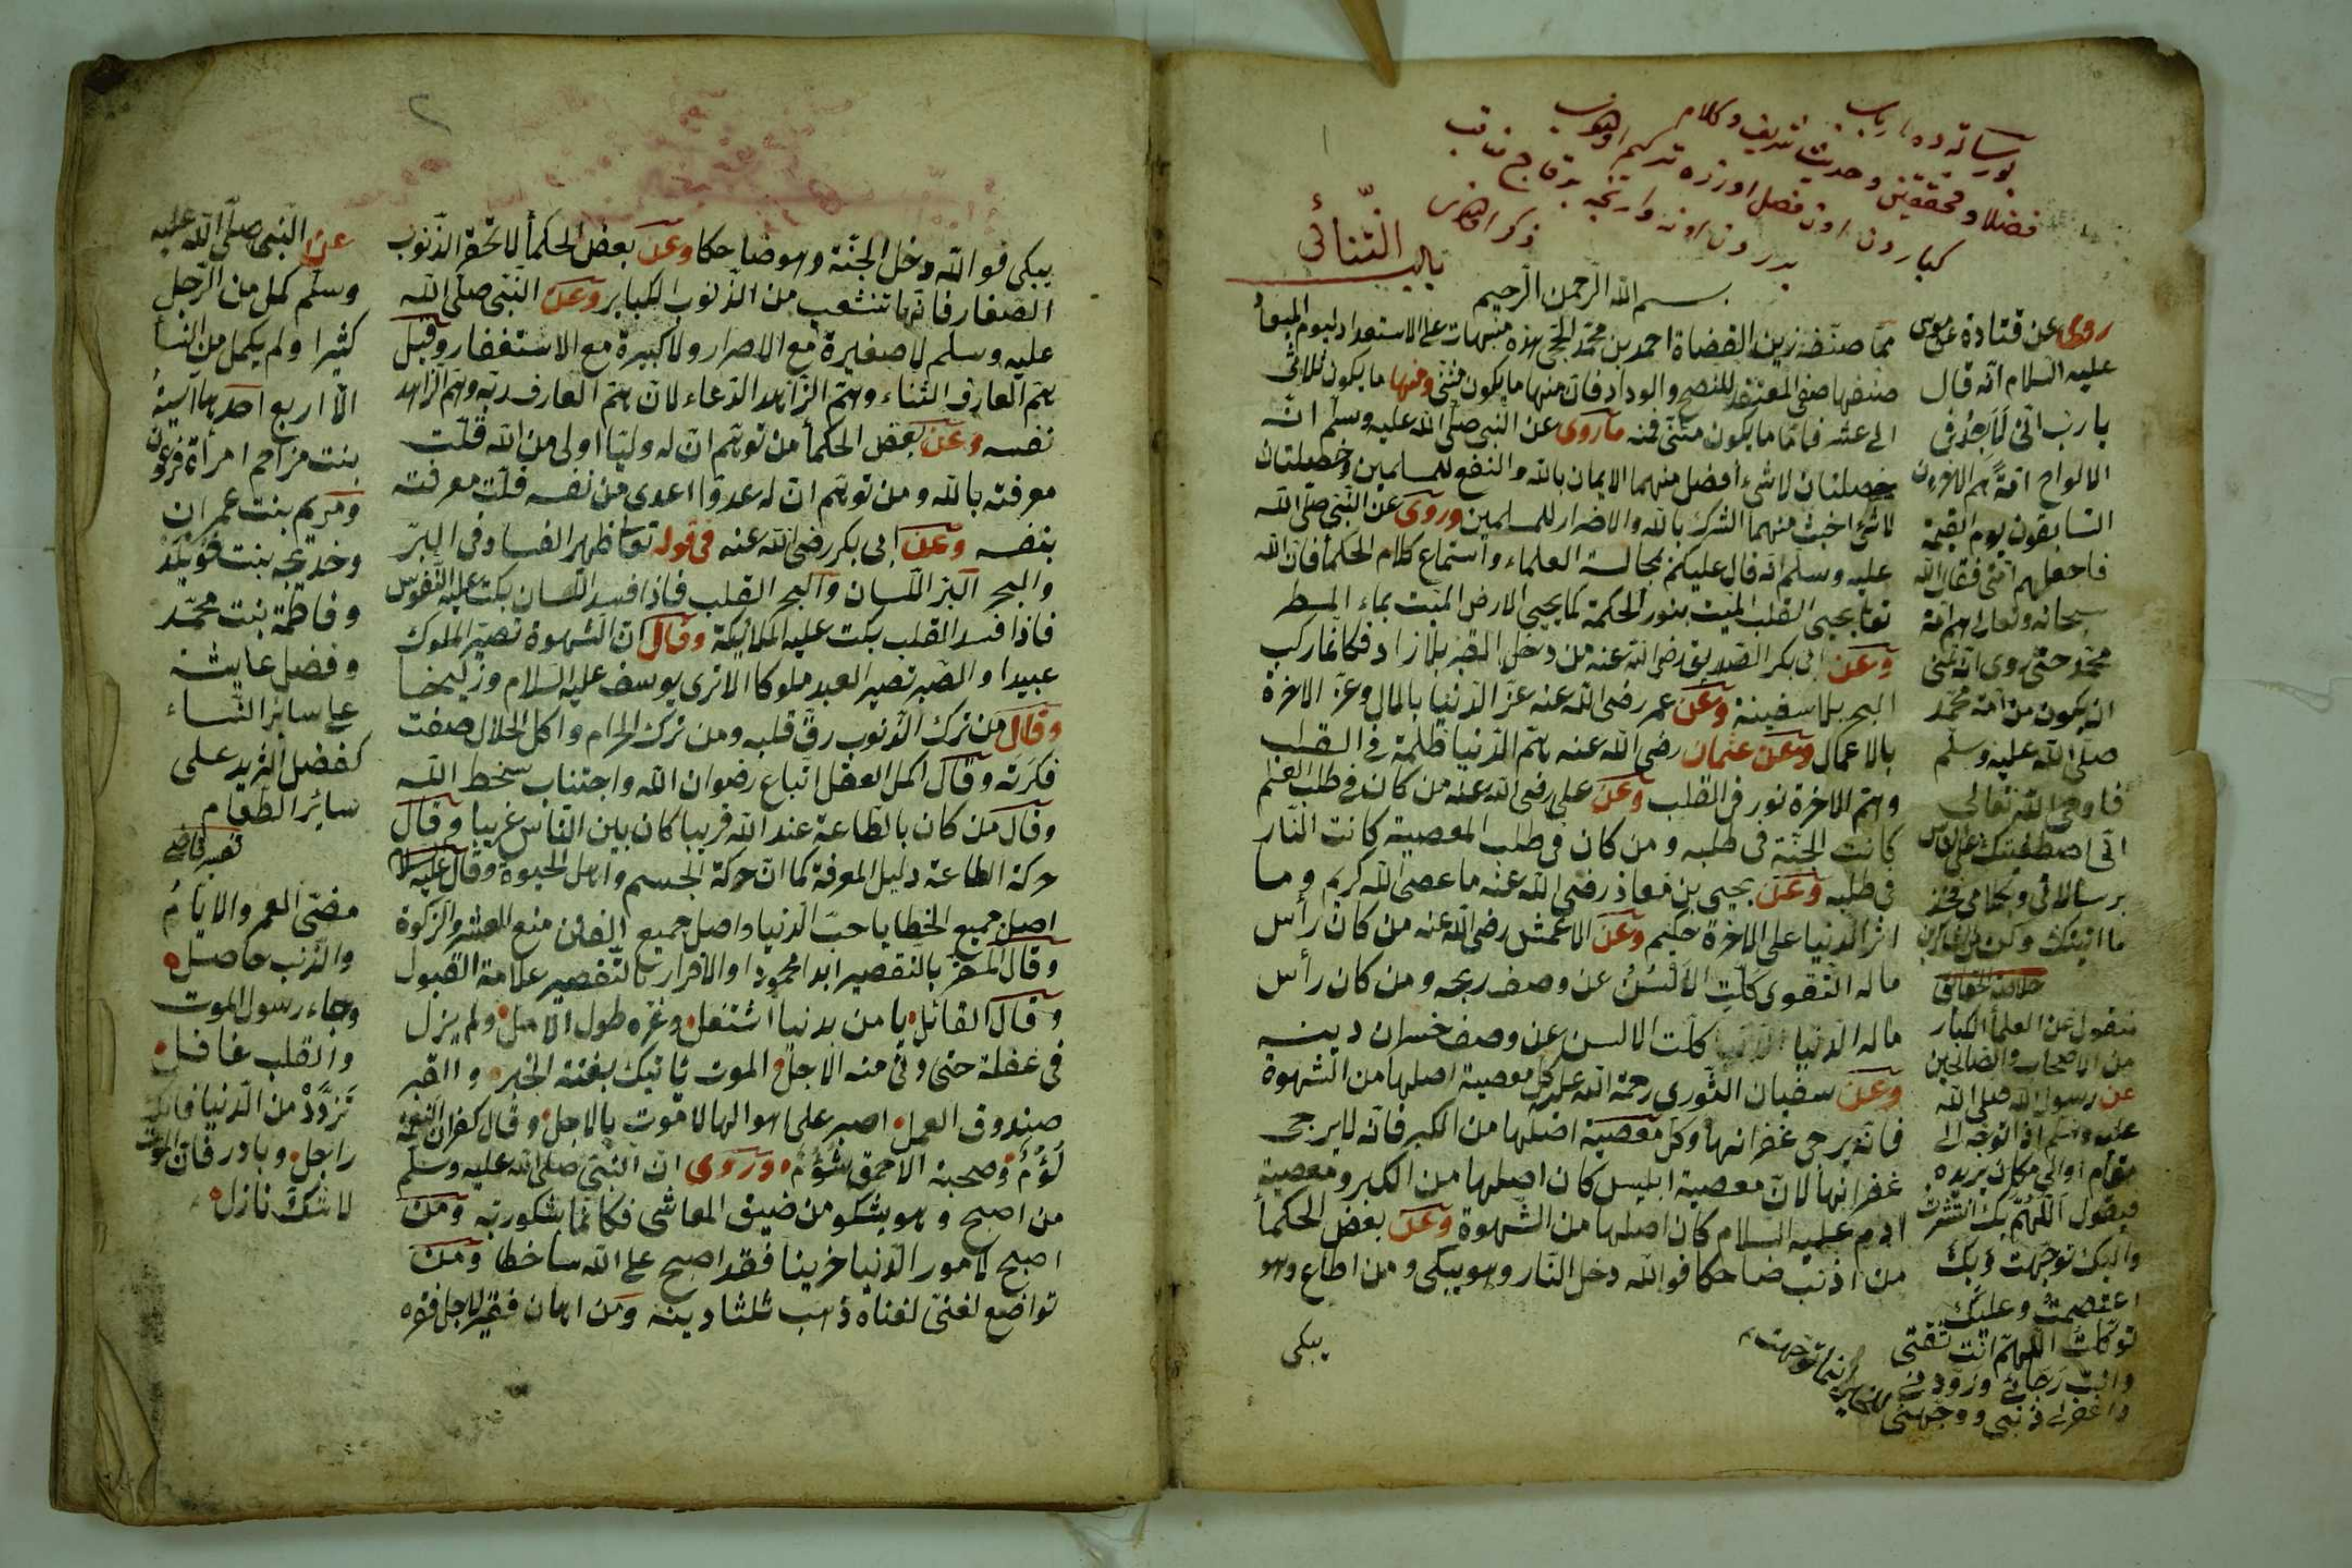 باب الثنائى
بسم الله الرحمن الرحيم
ممّا صنّفه زين القضاة احمد بن محمّد الحجى هذه منبهات على الاستعداد ليوم الميعاد
صنفها صفى المعتقد للنصح والوداد فان منها ما يكون مثنى ومنها ما يكون ثلاثى
الى عشر فامّا ما يكون مثنّى فمنه ما روى عن النبى صلّى الله عليه وسلّم انّه
خصلتان لا شىء أفضل منهما الايمان بالله والنفع للمسلمين وخصلتان
لا شىء اخبث منهما الشرك بالله والاضرار للمسلمين وروى عن النّبى صلّى الله
عليه وسلّم انّه قال عليكم بمجالسة العلماء واستماع كلام الحكمأ فانّ الله
تعا يحيى القلب الميّت بنور الحكمة كما يحيى الارض الميّت بماء المطر
وعن ابى بكر الصّديق رضى الله عنه من دخل القبر بلا زاد فكانّما ركب
البحر بلا سفينة وعن عمر رضى الله عنه عزّ الدّنيا بالمال وعزّ الاخرة
بالاعمال وعن عثمان رضى الله عنه همّ الدّنيا ظلمة فى القلب
وهمّ الاخرة نور فى القلب وعن على رضى الله عنه من كان فى طلب العلم
كانت الجنّة فى طلبه ومن كان فى طلب المعصية كانت النّار
فى طلبه وعن يحيى بن معاذ رضى الله عنه ما عصى الله كريم وما
اثر الدّنيا على الاخرة حكيم وعن الاعمش رضى الله عنه من كان رأس
ماله التقوى كلّت الالسُنُ عن وصف ربحه ومن كان رأس
ماله الدّنيا كلّت الالسن عن وصف خسران دينه
وعن سفيان الثّورى رحمة الله عليه كلّ معصية اصلها من الشهوة
فانّه يرجى غفرانها وكلّ معصية اصلها من الكبر فانّه لا يرجى
غفرانها لانّ معصية ابليس كان اصلها من الكبر ومعصية
ادم عليه السّلام كان اصلها من الشّهوة وعن بعض الحكمأ
من اذنب ضاحكا فو الله دخل النّار وهو يبكى ومن اطاع وهو
يبكى
روى عن قتادة عن موسى
عليه السّلام انّه قال
يا ربّ انّى لَاَجِدُ فى
الالواح امّةً هم الاخرون
السّابقون يوم القيمة
فاجعلهم امّتى فقال الله
سبحانه وتعالى هم امّة
محمّد حتّى روى انّه تمنّى
ان يكون من امّة محمّد
صلّى الله عليه وسلّم
فاوحى الله تعالى
انّى اصطفيتك على النّاس
برسالاتى وبكلامى فخذ
ما اتيتك وكن من الشاكرين
منقول عن العلمأ الكبار
من الاصحاب والصّالحين
عن رسول الله صلّى الله
عليه وسلّم اذا توجّه الى
مقام او الى مكان يريده
فيقول اللّهمّ بك انتشرت
واليك توجّهت وبك
اعتصمت وعليك
توكّلت اللّهمّ انت ثقتى
وانت رجائى وزوّدنى
واغفر لى ذنبى ووجّهنى
يبكى فو الله دخل الجنّة وهو ضاحكا وعن بعض الحكمأ لا تحقر الذّنوب
الصّغار فانّها تتشعب من الذّنوب الكباير وعن النّبى صلّى الله
عليه وسلم لا صغيرة مع الاصرار ولا كبيرة مع الاستغفار وقيل
همّ العارف الثناء وهمّ الزّاهد الدّعاء لانّ همّ العارف ربّه وهمّ الزّاهد
نفسه وعن بعض الحكمأ من توهّم انّ له وليّا اولى من الله قلّت
معرفته بالله ومن توهّم انّ له عدوّا اعدى من نفسه قلّت معرفته
بنفسه وعن ابى بكر رضى الله عنه فى قوله تعا ظهر الفساد فى البرّ
والبحر البرّ اللّسان والبحر القلب فاذا فسد اللّسان بكت عليه النّفوس
فاذا فسد القلب بكت عليه الملائكة وقال انّ الشّهوة تصيّر الملوك
عبيدا والصّبر تصير العبد ملوكا الا ترى يوسف عليه السّلام وزليخا
وقال من ترك الذّنوب رقّ قلبه ومن ترك الحرام واكل الحلال صفت
فكرته وقال اكمل العقل اتّباع رضوان الله واجتناب سخط الله
وقال من كان بالطّاعة عند الله قريبا كان بين النّاس غريبا وقال
حركة الطاعة دليل المعرفة كما انّ حركة الجسم دليل الحيوة وقال عليه السلام
اصل جميع الخطايا حبّ الدّنيا واصل جميع الفتن منع العشر والزّكوة
وقال المقرّ بالتّقصير ابدا محمودا والاقرار بالتّقصير علامة القبول
وقال القائل يا من بدنيا اشتغل وغرّه طول الامل ولم يزل
فى غفلة حتى دنى منه الاجل الموت ياتيك بغتة والقبر
صندوق العمل اصبر على اهوالها لا موت الا بالاجل وقال كفران النّعمة
لُؤْمٌ وصحبة الاحمق شُؤْمٌ وروى انّ النّبىّ صلّى الله عليه وسلّم
من اصبح وهو يشكو من ضيق المعاش فكانّما يشكو ربّه ومن
اصبح لامور الدّنيا حزينا فقد اصبح على الله ساخطا ومن
تواضع لغنىّ لغناه ذهب ثلثا دينه ومن اهان فقيرا لاجل فقره
عن النّبى صلّى الله عليه
وسلّم كمل من الرّجل
كثيرا ولم يكمل من النسأ
الّا اربع احدها آسية
بنت مزاحم امرأة فرعون
ومريم بنت عمران
وخديجه بنت خويلد
وفاطمة بنت محمّد
وفضل عايشه
على سائر النّساء
كفضل الثريد على
سائر الطّعام
تفسير قاضى
مضى العمر والايّامُ
والذّنب حاصل
وجاء رسول الموت
والقلب غافل
تَزَوَّدْ من الدّنيا فانّك
راحل وبادر فانّ الموت
لا شكّ نازل